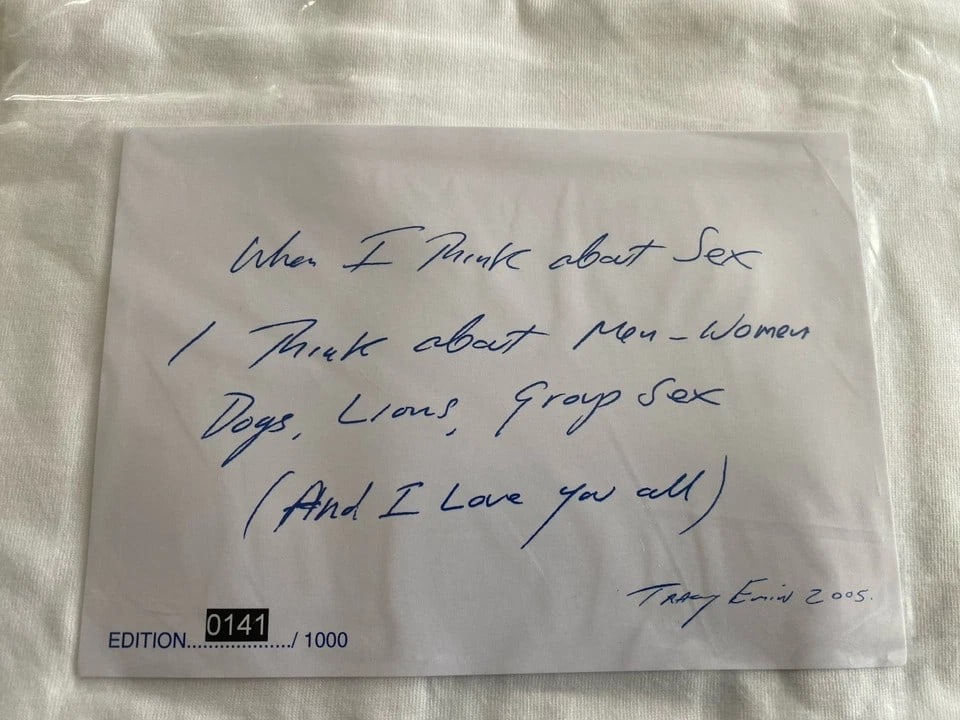 When I Think about Sex
I Think about Men - Women
Dogs, Lions, Group Sex
(And I Love you all)
Tracey Emin 2005.
EDITION..................../ 1000
0141